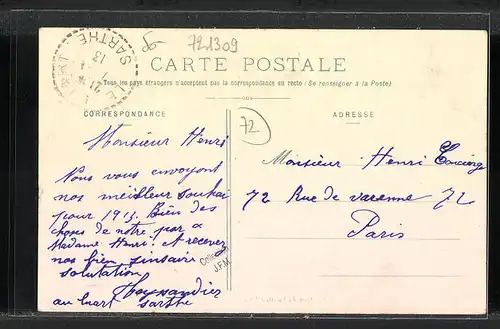 SARTHE
13
7221309
CARTE POSTALE
Tous les pays étrangers n'acceptent pas la correspondance au recto (Se renseigner à la Poste)
CORRESPONDANCE
Monsieur Henri
Nous vous envoyont
nos meilleur souhai
pour 1913. Bien des
choses de notre par a
Madame Henri. et recevez
nos bien sinsair
solutation
au Sarthe
Collec
J.P.M
72
ADRESSE
Monsieur Henri Concierge
72 Rue de varenne 72
Paris